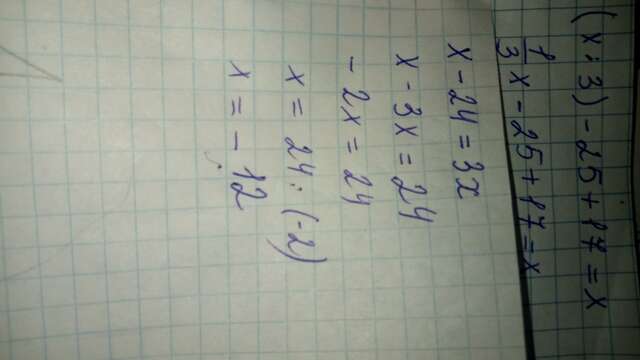 (x : 3) - 25 + 17 = x
1/3 x - 25 + 17 = x
x - 24 = 3x
x - 3x = 24
- 2x = 24
x = 24 : (-2)
x = - 12